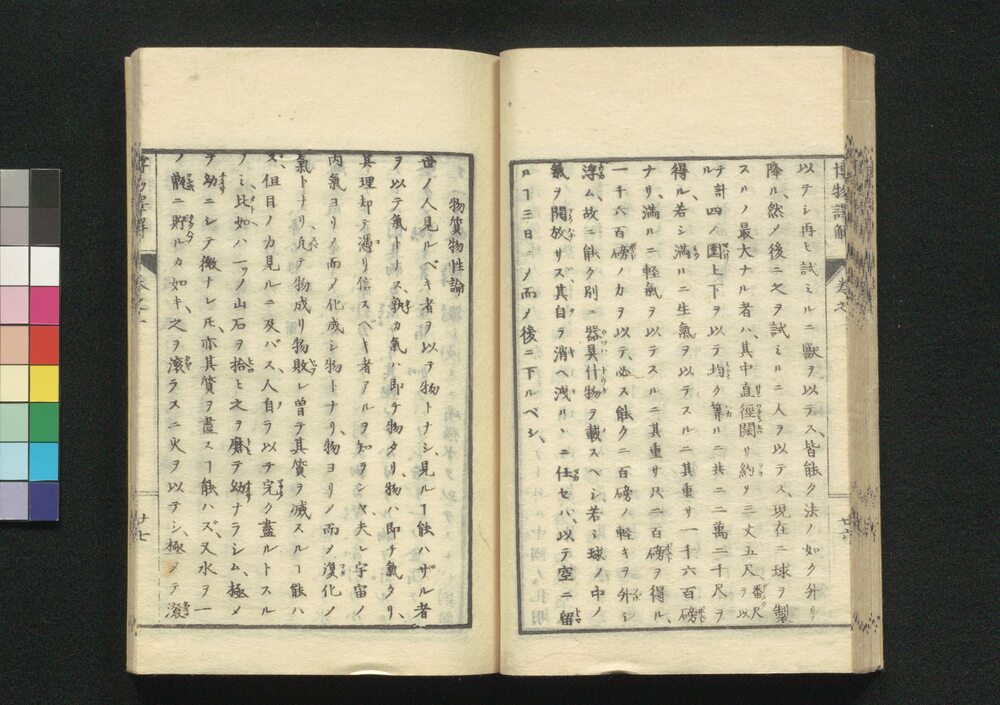 博物譯解 卷之
廿六
以テシ再ヒ試ミルニ獸ヲ以テス、皆能ク法ノ如ク升リ
降ル、然ノ後ニ之ヲ試ミルニ人ヲ以テス、現在ニ球ヲ製
スルノ最大ナル者ハ、其中直徑闊サ約ソ三丈五尺、番尺ヲ以
テ計四ノ圍上下ヲ以テ均ク算ルニ共ニ二萬二千尺ヲ
得ル、若シ滿ルニ生氣ヲ以テスルニ其重サ一千六百磅
ナリ、滿ルニ輕氣ヲ以テスルニ其重サ只二百磅ヲ得ル、
一千六百磅ノ力ヲ以テ、必ス能ク二百磅ノ輕キヲ升シ
浮ム、故ニ能ク別ニ器具什物ヲ載スヘシ若シ球ノ中ノ
氣ヲ開放サス其自ヲ消ヘ洩ルヽニ任セバ、以テ空ニ留
ルヿ三日ニメ而メ後ニ下ルベシ、
物質物性論
世ノ人見ルベキ者ヲ以テ物トナシ、見ルヿ能ハザル者
ヲ以テ氣トナス、孰カ氣ハ即チ物タリ、物ハ即チ氣タリ、
其理却テ憑リ信スベキ者アルヲ知ランヤ、夫レ宇宙ノ
内氣ヨリメ而メ化成シ物トナリ、物ヨリメ而メ復化メ
氣トナリ、凡テ物成リ物敗レ曽テ其質ヲ滅スルヿ能ハ
ズ、但目ノ力見ルニ及バス、人自ラ以テ完ク盡ルトスル
ノミ、比如ハ一ツノ山石ヲ拾ヒ之ヲ磨テ幼ナラシム、極メ
テ幼ニシテ微ナレ𪜈、亦其質ヲ盡スヿ能ハズ、又水ヲ一
ノ甑ニ貯ルカ如キ、之ヲ滾ラスニ火ヲ以テシ、極メテ滾
博物譯解 卷之一
廿七